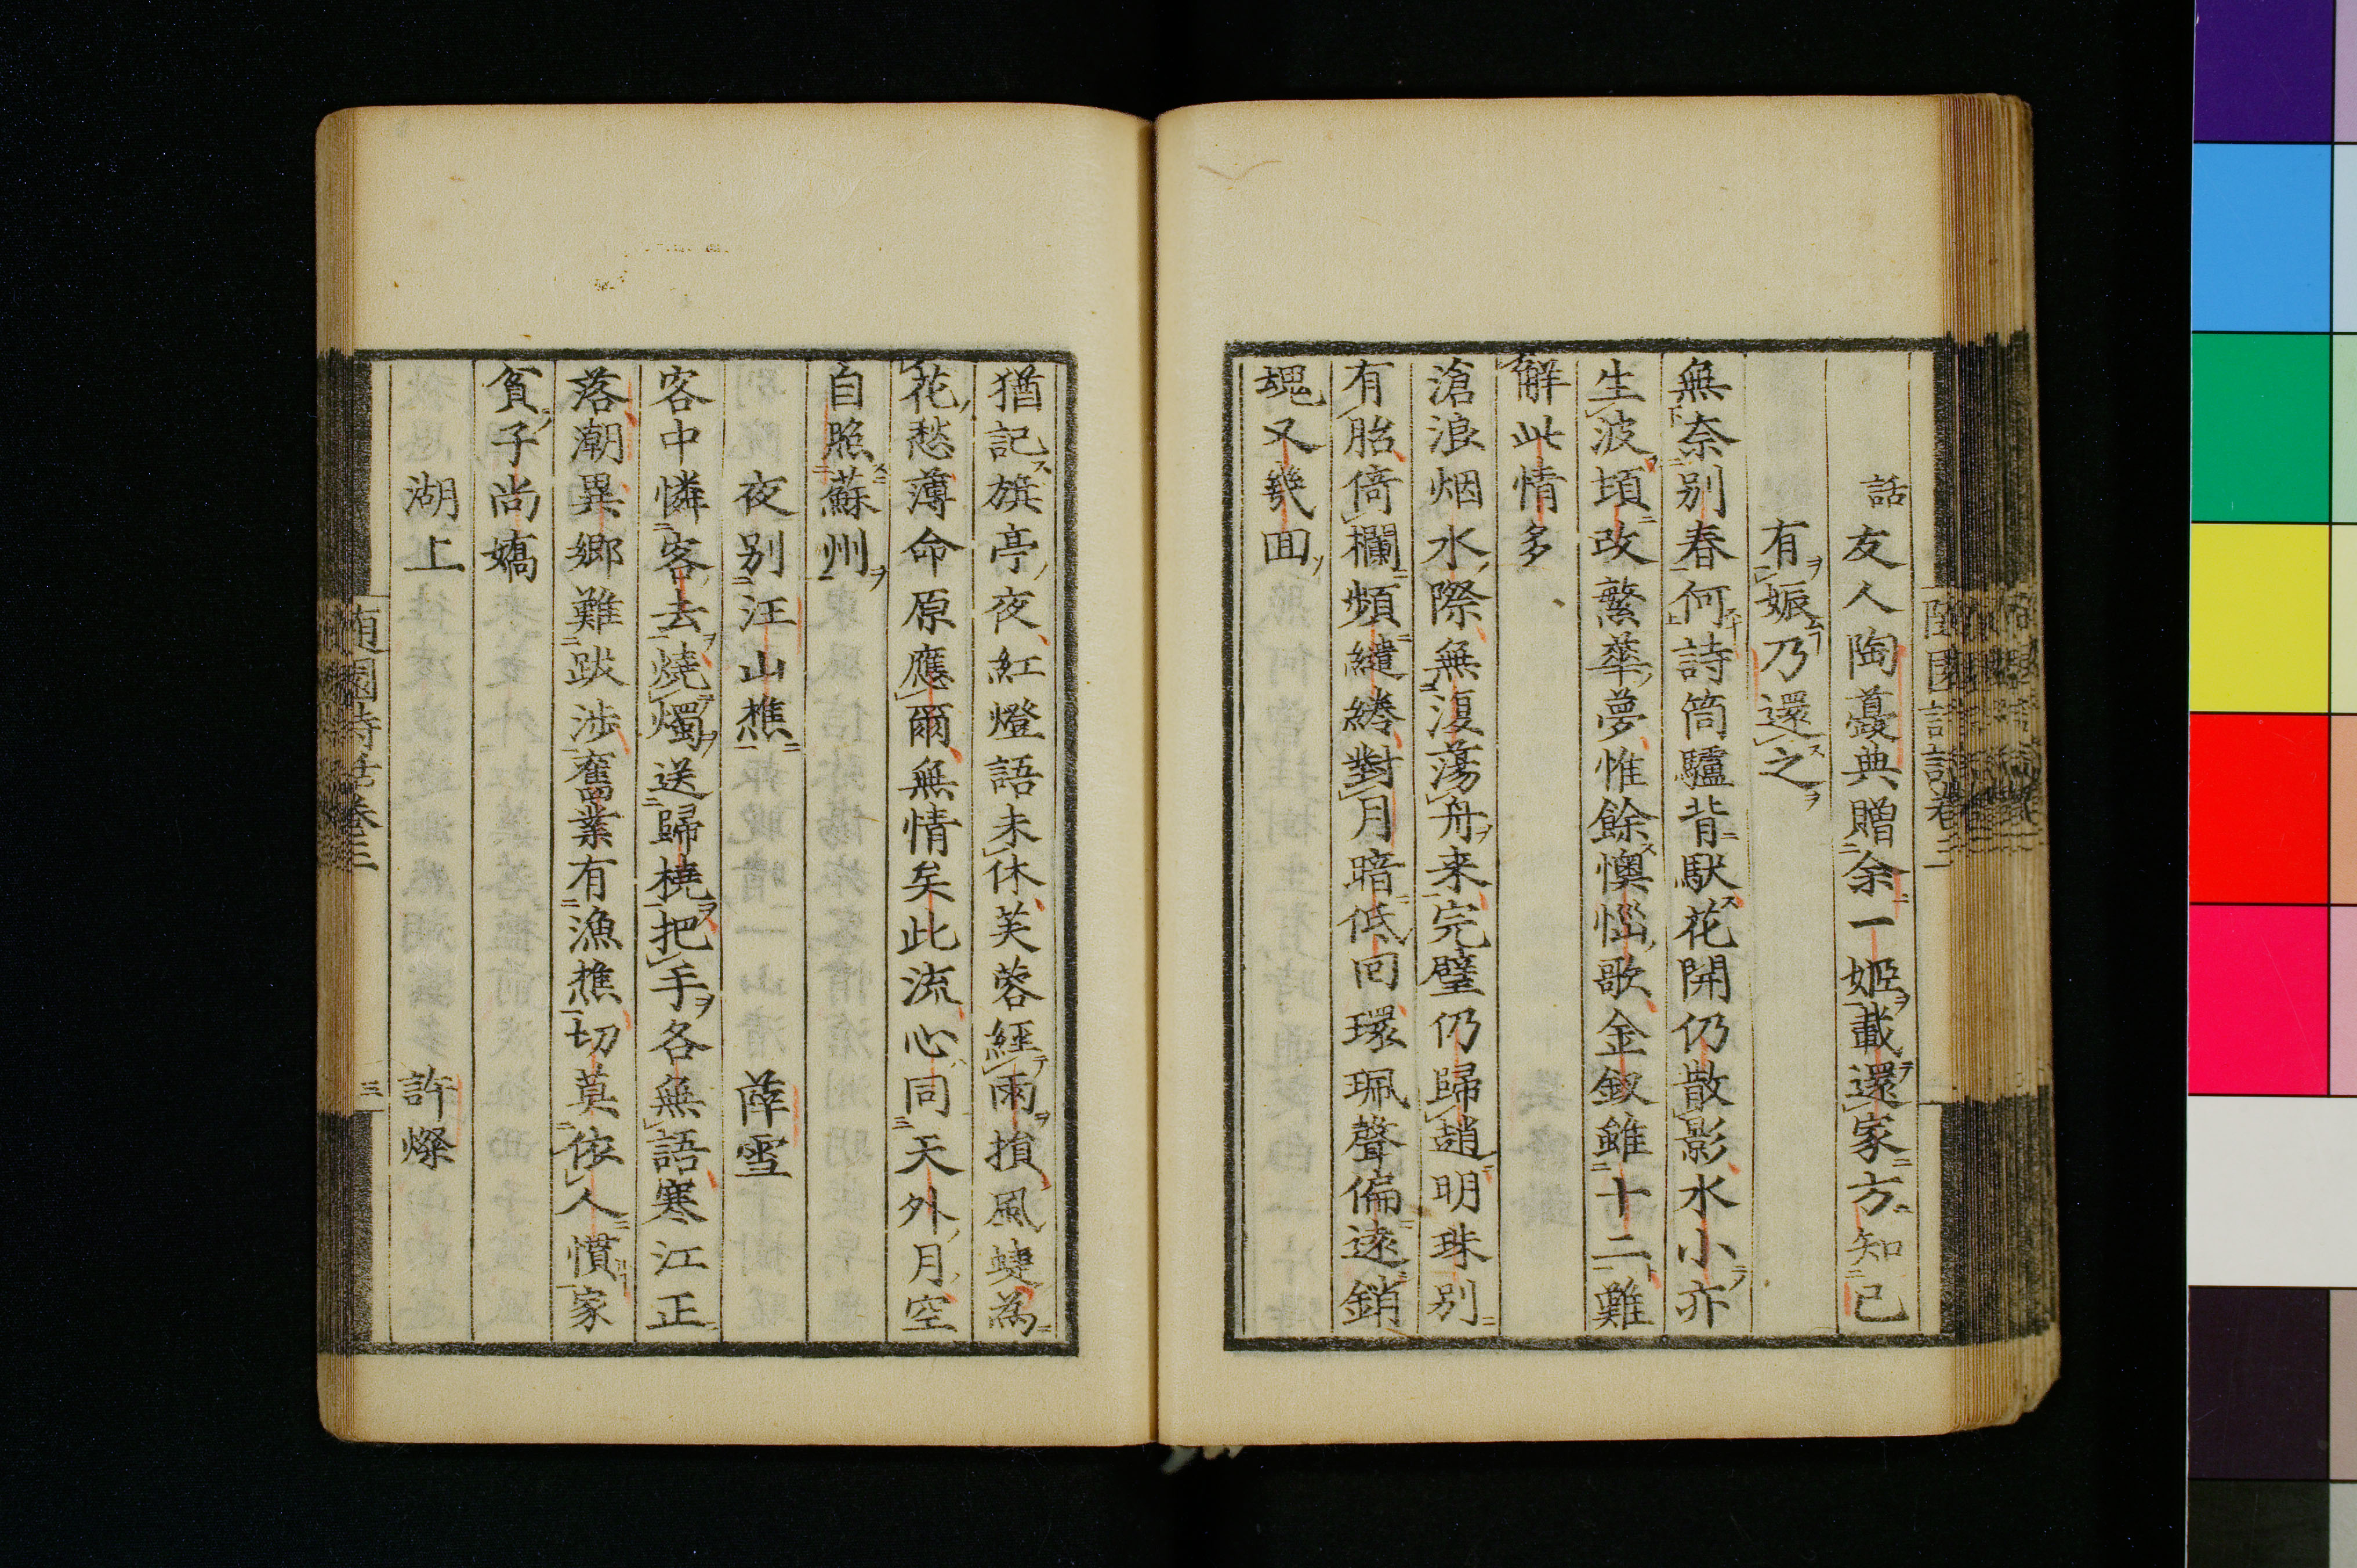 話友人陶蘉典贈余一姬載還家方知已
有娠乃還之
無奈别春何詩筒驢背馱花開仍散影水小亦
生波頃改繁華夢惟餘懊惱歌金釵雖十二難
解此情多
滄浪烟水際無復蕩舟来完璧仍歸趙明珠别
有胎倚欄頻繾綣對月暗低回環珮聲偏遠銷
魂又幾回
猶記旗亭夜紅燈語未休芙蓉經雨損風蜨為
花愁薄命原應爾無情矣此流心同天外月空
自照蘇州
夜别汪山樵 薛雪
客中憐客去燒燭送歸橈把手各無語寒江正
落潮異郷難跋涉舊業有漁樵切莫依人慣家
貧子尚嬌
湖上 許燦
随園詩話卷三 三